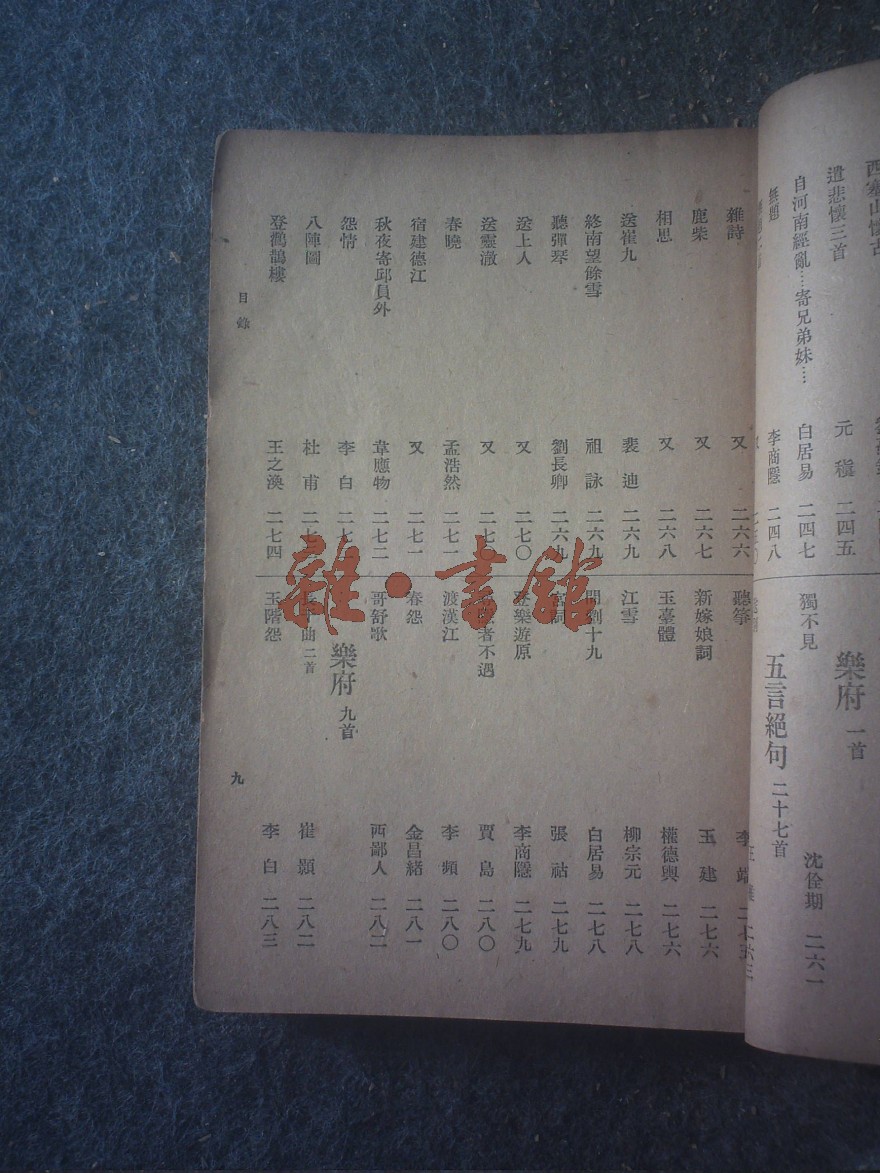 遣悲懷三首　元　稹　二四五
自河南經亂……寄兄弟妹……　白居易　二四七
無題　李商隱　二四八
樂府　一首
獨不見　沈佺期　二六一
五言絕句　二十七首
雜詩　又　二六六
鹿柴　又　二六七
相思　又　二六八
送崔九　裴　迪　二六九
終南望餘雪　祖　詠　二六九
聽彈琴　劉長卿　二六九
送上人　又　二七〇
送靈澈　又　二七〇
春曉　孟浩然　二七一
宿建德江　又　二七一
秋夜寄邱員外　韋應物　二七二
怨情　李　白　二七
八陣圖　杜　甫　二七
登鸛鵲樓　王之渙　二七四
聽箏　李　端
新嫁娘詞　王　建　二七六
玉臺體　權德輿　二七六
江雪　柳宗元　二七八
問劉十九　白居易　二七八
宮詞　張　祜　二七九
登樂遊原　李商隱　二七九
者不遇　賈　島　二八〇
渡漢江　李　頻　二八〇
春怨　金昌緒　二八一
哥舒歌　西鄙人　二八二
樂府　九首
曲二首　崔　顥　二八二
玉階怨　李　白　二八三
目錄
九
雜·書館